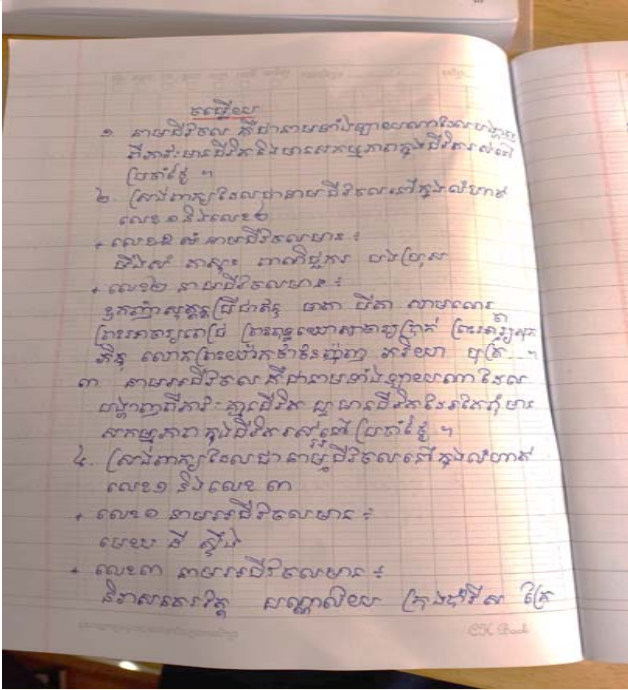 ចម្លើយ
១ នាមជីវិចល គឺជានាមទាំងឡាយណាដែលបង្ហាញ
ពីភាវៈមានជីវិត និងមានសកម្មភាពក្នុងជីវិតរស់នៅ
ប្រចាំថ្ងៃ ។
២. ស្រង់ពាក្យដែលជានាមជីវិចលនៅក្នុងលំហាត់
លេខ១ និងលេខ២
+ លេខ១ នាមជីវិចលមាន ៖
ភាសុះ ពាណិជ្ជករ បងប្រុស
+ លេខ២ នាមជីវិចលមាន ៖
ឧកញ៉ាសុត្តន្តប្រីជាឥន្ទ មាតា បីតា សាមណេរ
ព្រះអាចារ្យពេជ្រ ព្រះពុទ្ធឃោសាចារ្យប្រាក់ ព្រះអាចារ្យសុក
ភិក្ខុ លោកព្រះយ៉ាកថាទៃញ៉ាញ ភរិយា បុត្រ...។
៣ នាមអជីវិចល គឺជានាមទាំងឡាយណាដែល
បង្ហាញពីភាវៈគ្មានជីវិត ឬមានជីវិតដែរតែពុំមាន
សកម្មភាពក្នុងជីវិតរស់នៅប្រចាំថ្ងៃ ។
៤. ស្រង់ពាក្យដែលជានាមអជីវិចលនៅក្នុងលំហាត់
លេខ១ និងលេខ ៣
+ លេខ១ នាមអជីវិចលមាន ៖
មេឃ ដី ស្ទឹង
+ លេខ៣ នាមអជីវិចលមាន ៖
និវាសនដ្ឋាន បណ្ណាល័យ ក្រុងប៉ារីស គ្រែ
CK Book